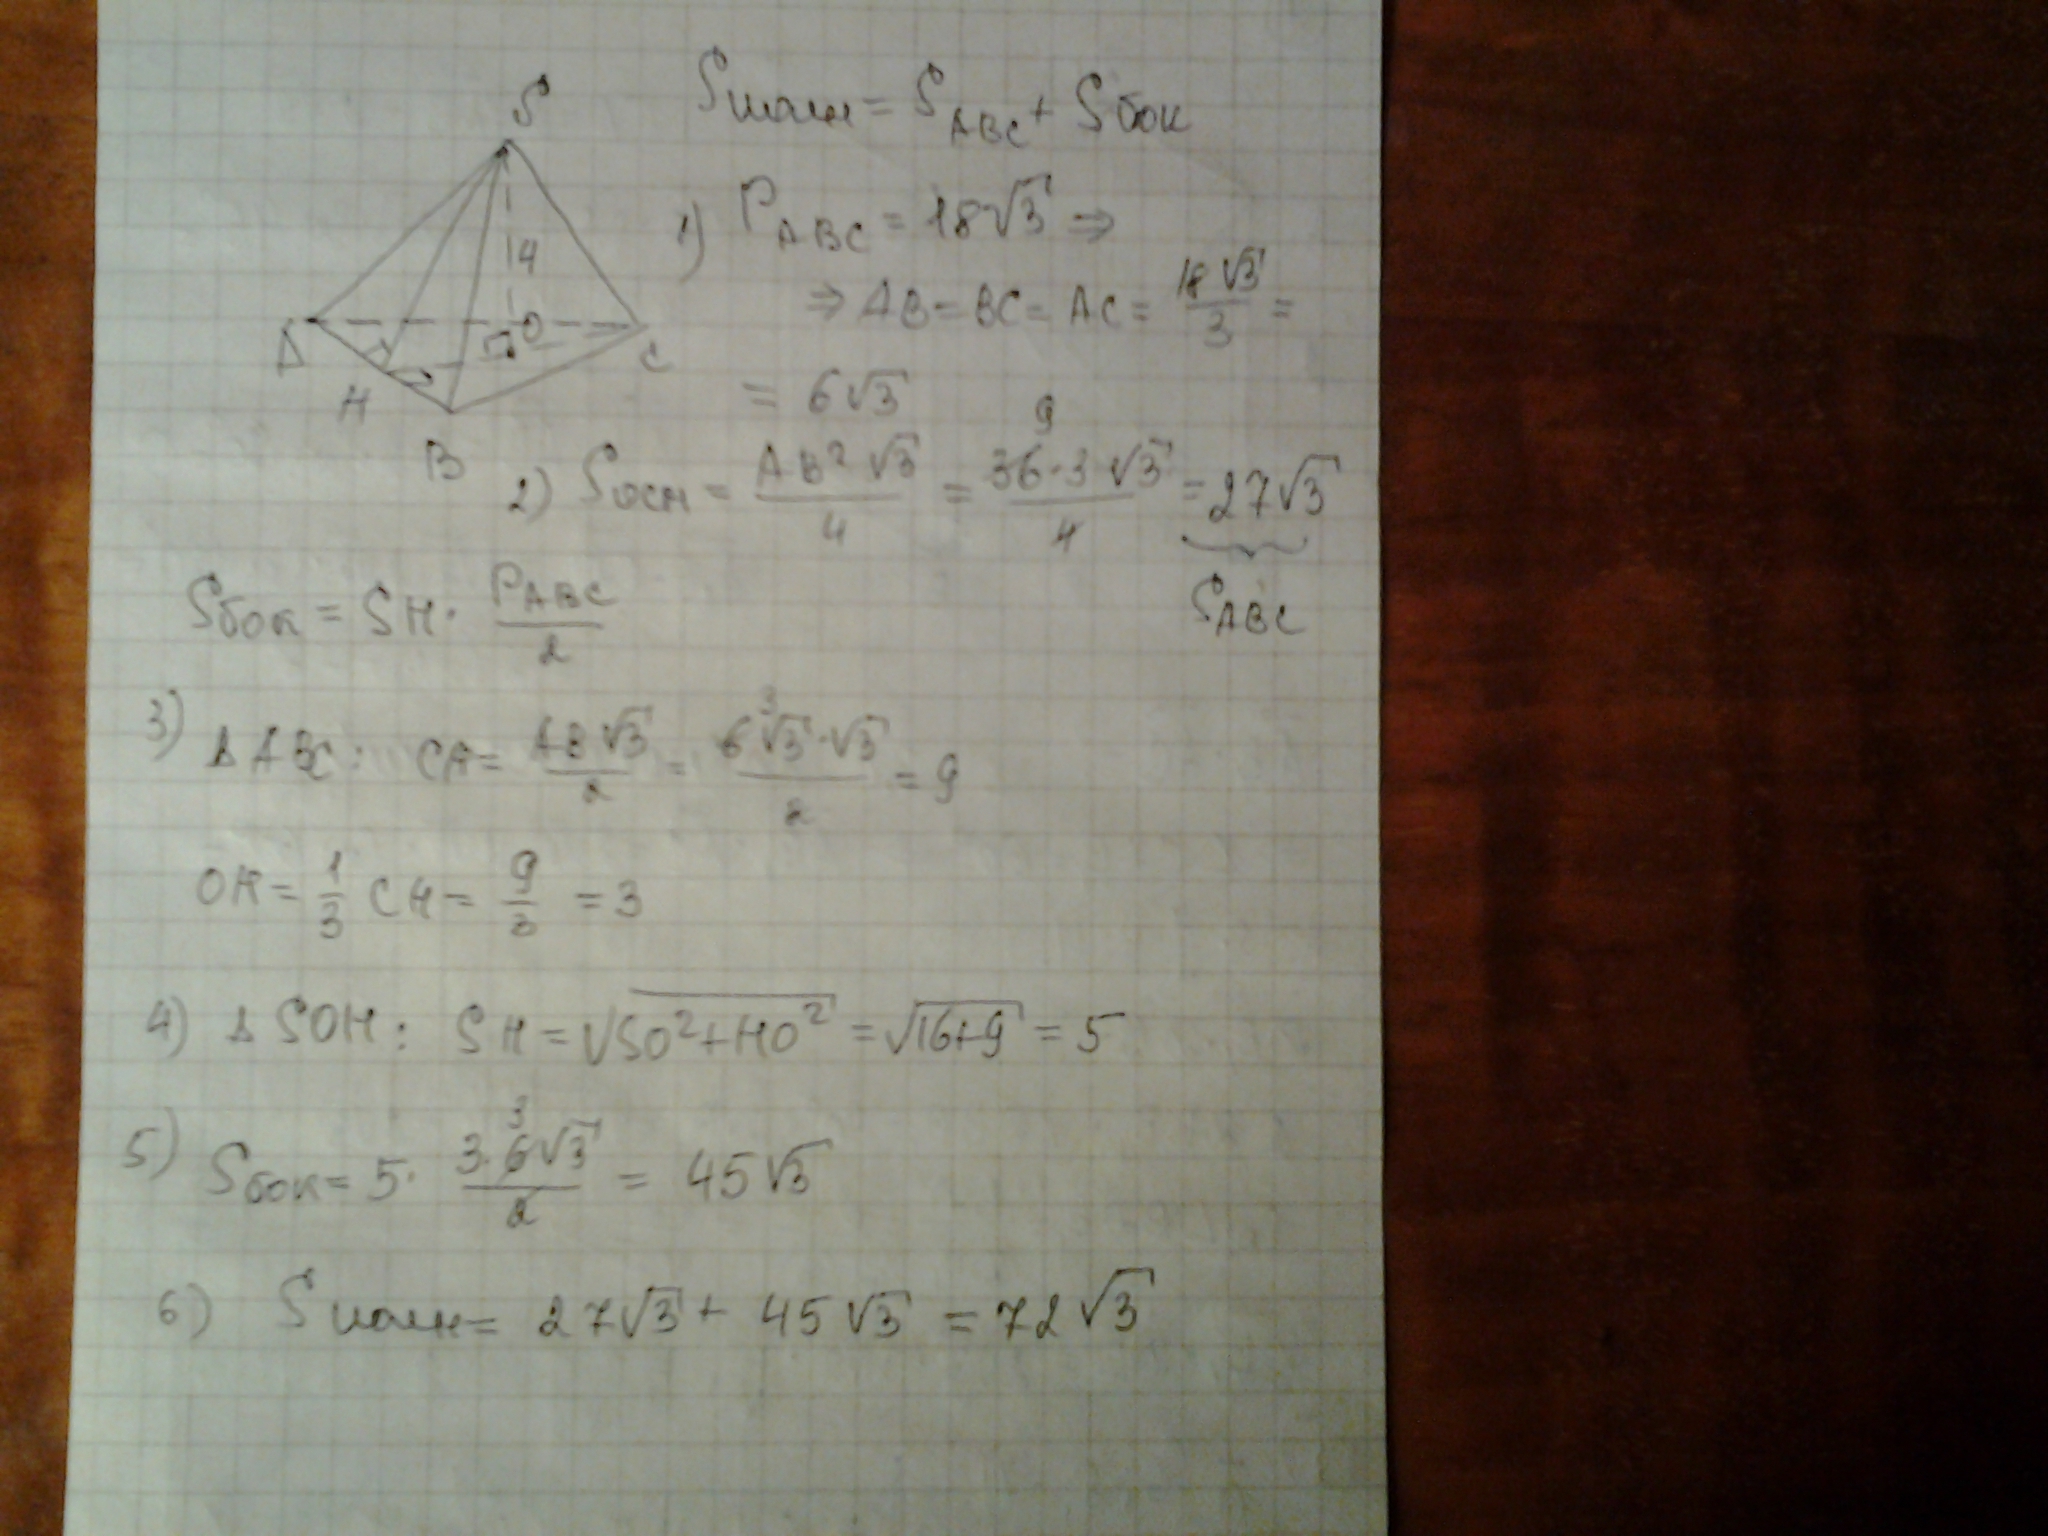 S
Sполн = S_ABC + Sбок
4
O
A
C
H
B
1) P_ABC = 18√3 ⇒
⇒ AB = BC = AC = 18√3/3 =
= 6√3
2) Sосн = AB²√3/4 = 36·3·√3/4 = 27√3
9
S_ABC
Sбок = SH · P_ABC/2
3) Δ ABC: CH = AB√3/2 = 6√3·√3/2 = 9
3
OH = 1/3 CH = 9/3 = 3
4) Δ SOH: SH = √SO²+HO² = √16+9 = 5
5) Sбок = 5 · 3·6√3/2 = 45√3
3
6) Sполн = 27√3 + 45√3 = 72√3